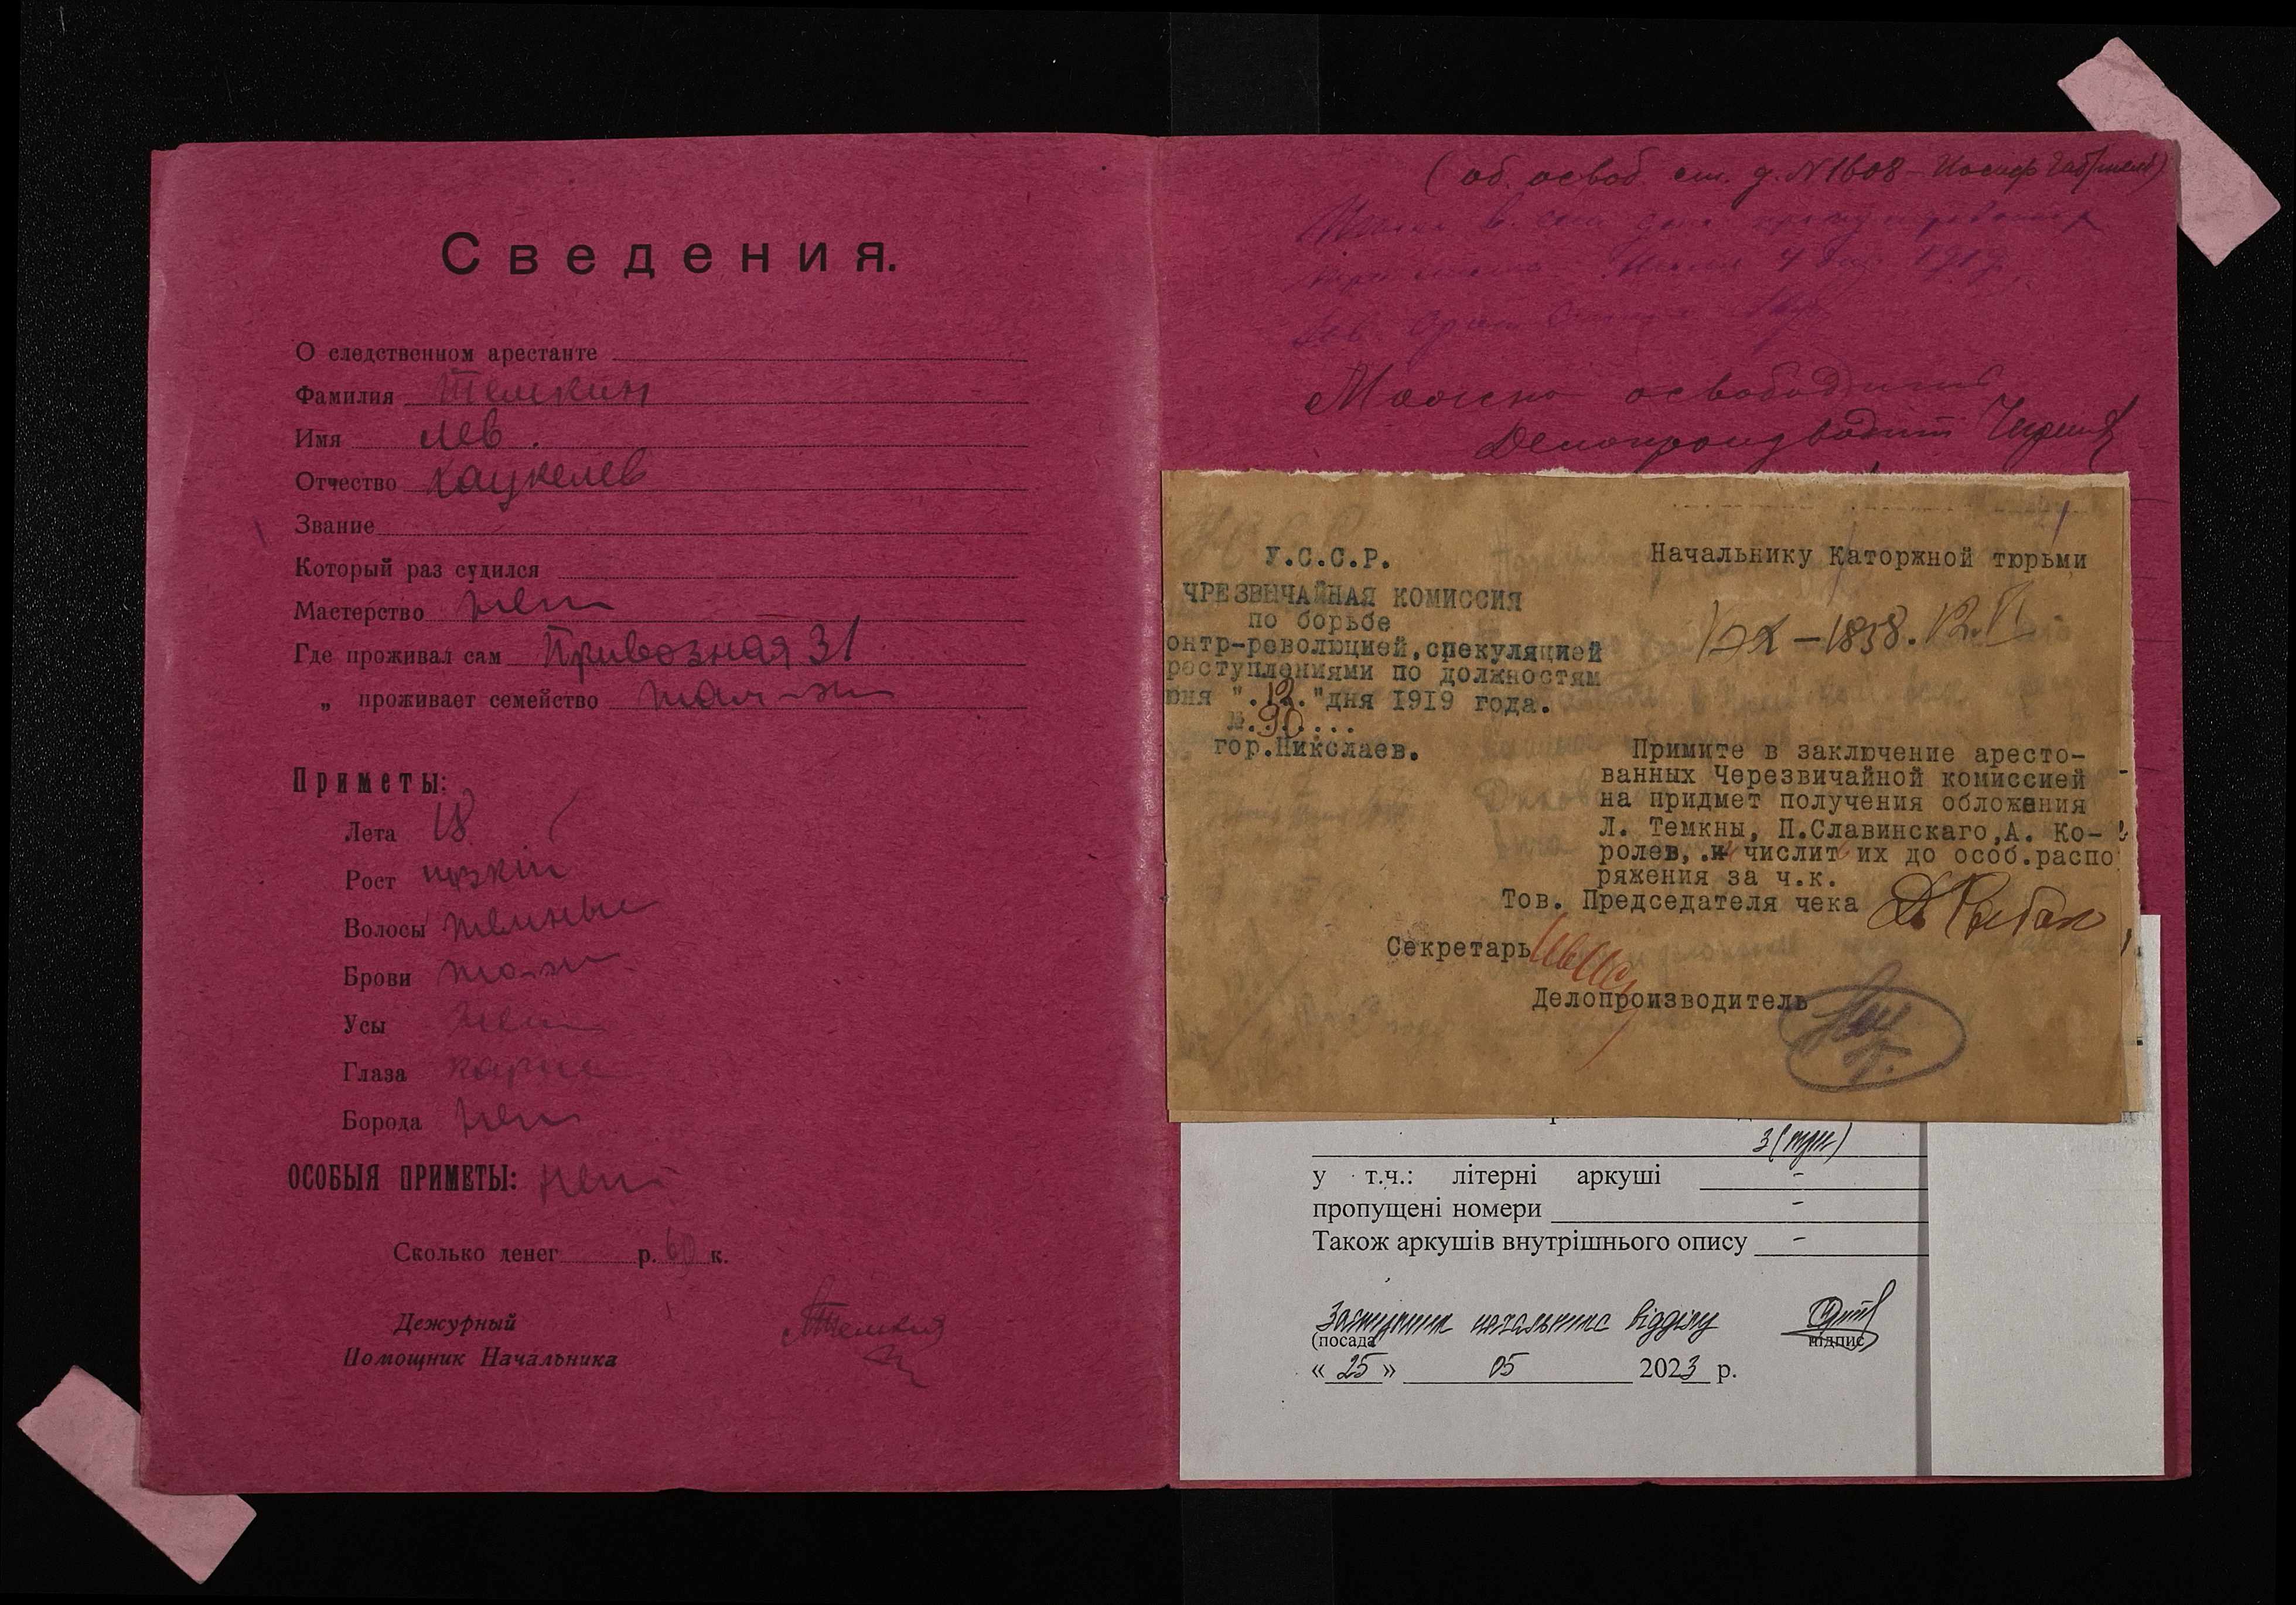 Сведения.
О следственном арестанте
Фамилия Темкин
Имя Лев.
Отчество Хацкелев
Звание
Который раз судился
Мастерство нет
Где проживал сам Привозная 31
„ проживает семейство там-же
Приметы:
Лета 18
Рост нызкій
Волосы темные
Брови тоже
Усы нет
Глаза карие
Борода нет
ОСОБЫЯ ПРИМЕТЫ: нет
Сколько денег р. 60 к.
Дежурный
Помощник Начальника
(об. освоб. см. д. N 1608 - Иосиф
1919
Можно освободить
Делопроизводит
У.С.С.Р.
ЧРЕЗВЫЧАЙНАЯ КОМИССИЯ
по борьбе
онтр-революцией,спекуляцией
реступлениями по должностям
юня ".12."дня 1919 года.
№.90....
гор.Николаев.
Начальнику Каторжной тюрьми
1838. 12.VI
Примите в заключение аресто-
ванных Черезвичайной комиссией
на придмет получения обложения
Л. Темкны, П.Славинскаго,А. Ко-
ролев, .и числит их до особ.распо
ряжения за ч.к.
Тов. Председателя чека
Секретарь
Делопроизводитель
3 (три)
у т.ч.: літерні аркуші -
пропущені номери -
Також аркушів внутрішнього опису -
Заступник начальника відділу
(посада підпис
« 25 » 05 2023 р.